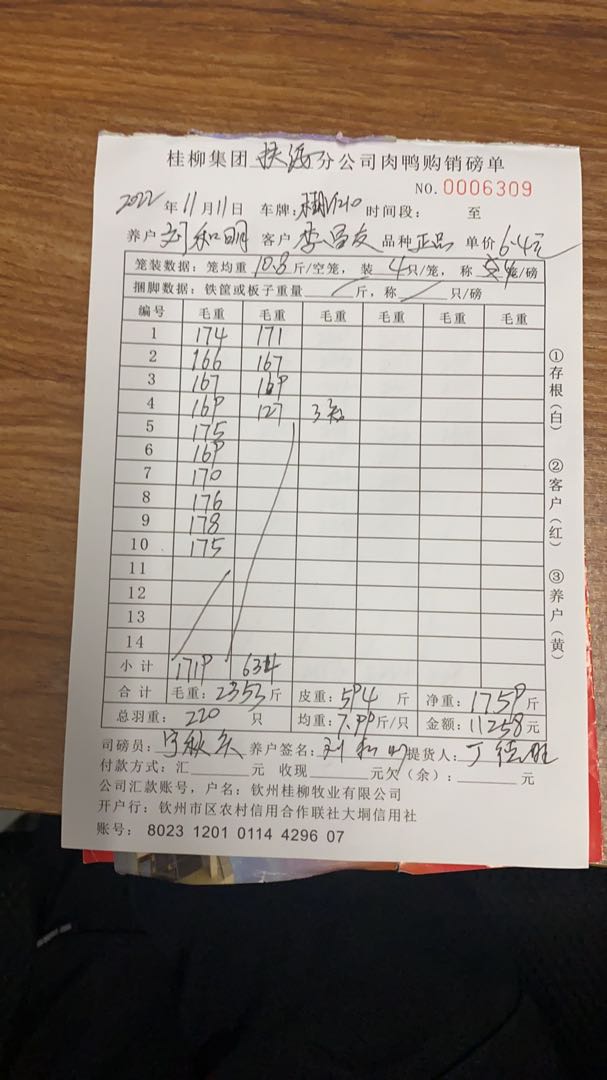 桂柳集团 分公司肉鸭购销磅单
NO.0006309
2022年11月11日 车牌: 时间段: 至
养户刘和明 客户李昌友 品种正品 单价6.4元
笼装数据:笼均重10.8斤/空笼,装4只/笼,称 笼/磅
捆脚数据:铁筐或板子重量 斤,称 只/磅
编号 毛重 毛重 毛重 毛重 毛重 毛重
1 174 171
2 166 167
3 167 169
4 169 127 3笼
5 175
6 169
7 170
8 176
9 178
10 175
11
12
13
14
小计 1719 634
合计 毛重:2353斤 皮重:594斤 净重:1759斤
总羽重:220只 均重:7.99斤/只 金额:11258元
司磅员: 养户签名:刘和明 提货人:
付款方式:汇 元 收现 元欠(余): 元
公司汇款账号,户名:钦州桂柳牧业有限公司
开户行:钦州市区农村信用合作联社大垌信用社
账号: 8023 1201 0114 4296 07
①存根(白) ②客户(红) ③养户(黄)